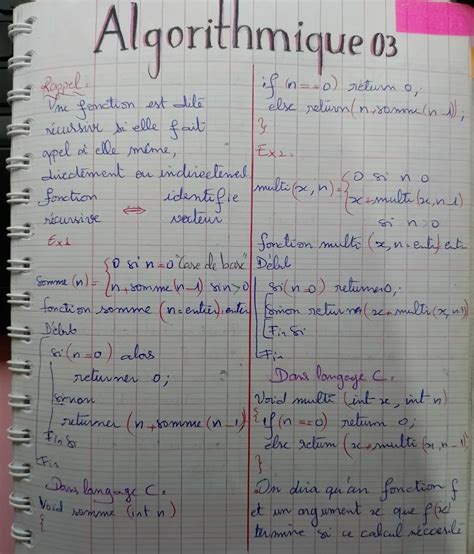 Algorithmique 03
Rappel:
Une fonction est dite
récursive si elle fait
appel à elle même,
directement ou indirectement
fonction identifie
récursive ⇔ vecteur
Ex1
somme (n) = { 0 si n=0 "case de base"
n+somme(n-1) si n>0
fonction somme (n: entier): entier
Début
si (n=0) alors
returner 0;
sinon
returner (n+somme(n-1))
Fin si
Fin
Dans langage C.
Void somme (int n)
{
if (n==0) return 0;
else return (n+somme(n-1));
}
Ex2.
multi(x,n) = { 0 si n=0
x+multi(x,n-1)
si n>0
fonction multi (x,n: entier): entier
Début
si(n=0) returner 0;
Sinon return (x+multi(x,n-1))
Fin Si
Fin
Dans langage C.
Void multi (int x, int n)
{ if(n==0) return 0;
else return (x+multi(x,n-1))
}
On dira qu'un fonction f
et un argument x que f(x)
termine si ce calcul